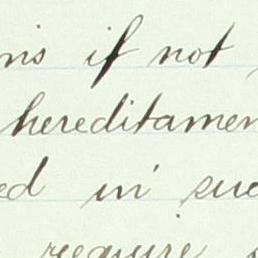 is if not
hereditamen
ed in suc
require